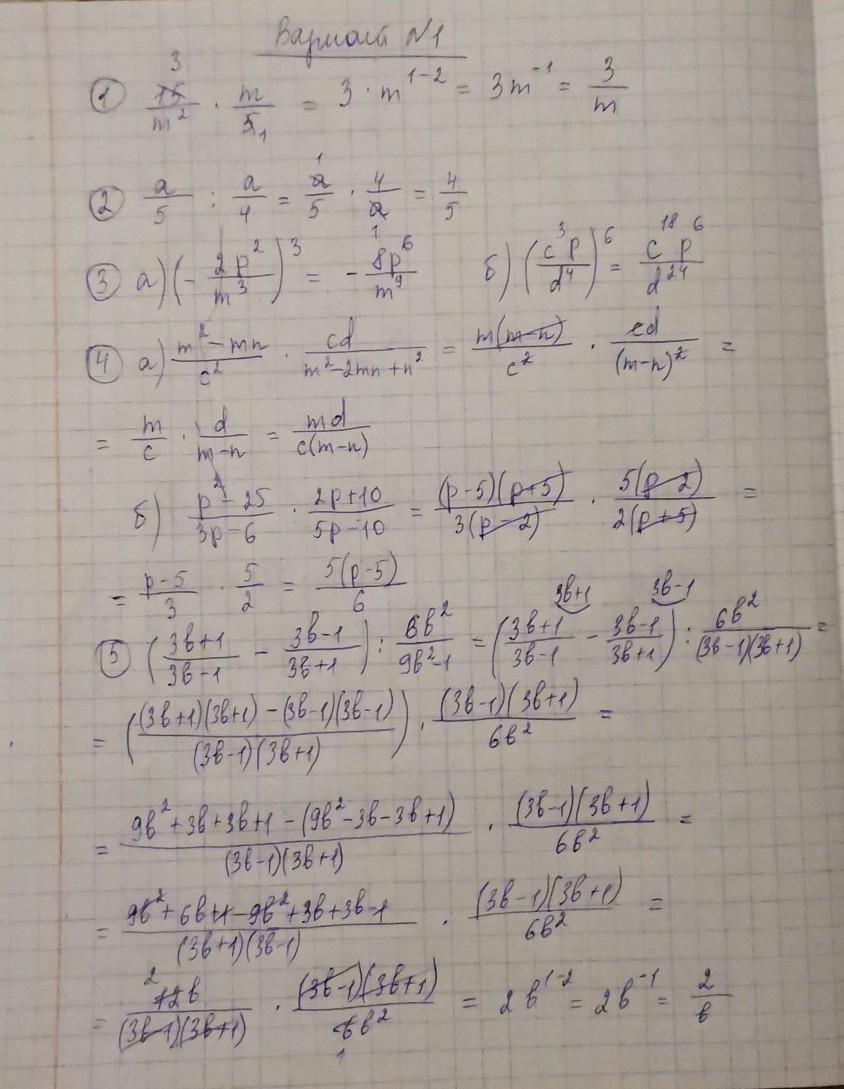 Вариант №1
① 15/m² · m/5 = 3 · m¹⁻² = 3m⁻¹ = 3/m
② a/5 : a/4 = a/5 · 4/a = 4/5
③ а) (-2p²/m³)³ = -8p⁶/m⁹ б) (c³p/d⁴)⁶ = c¹⁸p⁶/d²⁴
④ а) m²-mn/c² · cd/m²-2mn+n² = m(m-n)/c² · cd/(m-n)² =
= m/c · d/m-n = md/c(m-n)
б) p²-25/3p-6 : 2p+10/5p-10 = (p-5)(p+5)/3(p-2) · 5(p-2)/2(p+5) =
= p-5/3 · 5/2 = 5(p-5)/6
⑤ (3b+1/3b-1 - 3b-1/3b+1) : 6b²/9b²-1 = (3b+1/3b-1 - 3b-1/3b+1) : 6b²/(3b-1)(3b+1) =
= ((3b+1)(3b+1)-(3b-1)(3b-1)/(3b-1)(3b+1)) · (3b-1)(3b+1)/6b² =
= 9b²+3b+3b+1-(9b²-3b-3b+1)/(3b-1)(3b+1) · (3b-1)(3b+1)/6b² =
= 9b²+6b+1-9b²+3b+3b-1/(3b+1)(3b-1) · (3b-1)(3b+1)/6b² =
= 12b/(3b-1)(3b+1) · (3b-1)(3b+1)/6b² = 2b¹⁻² = 2b⁻¹ = 2/b